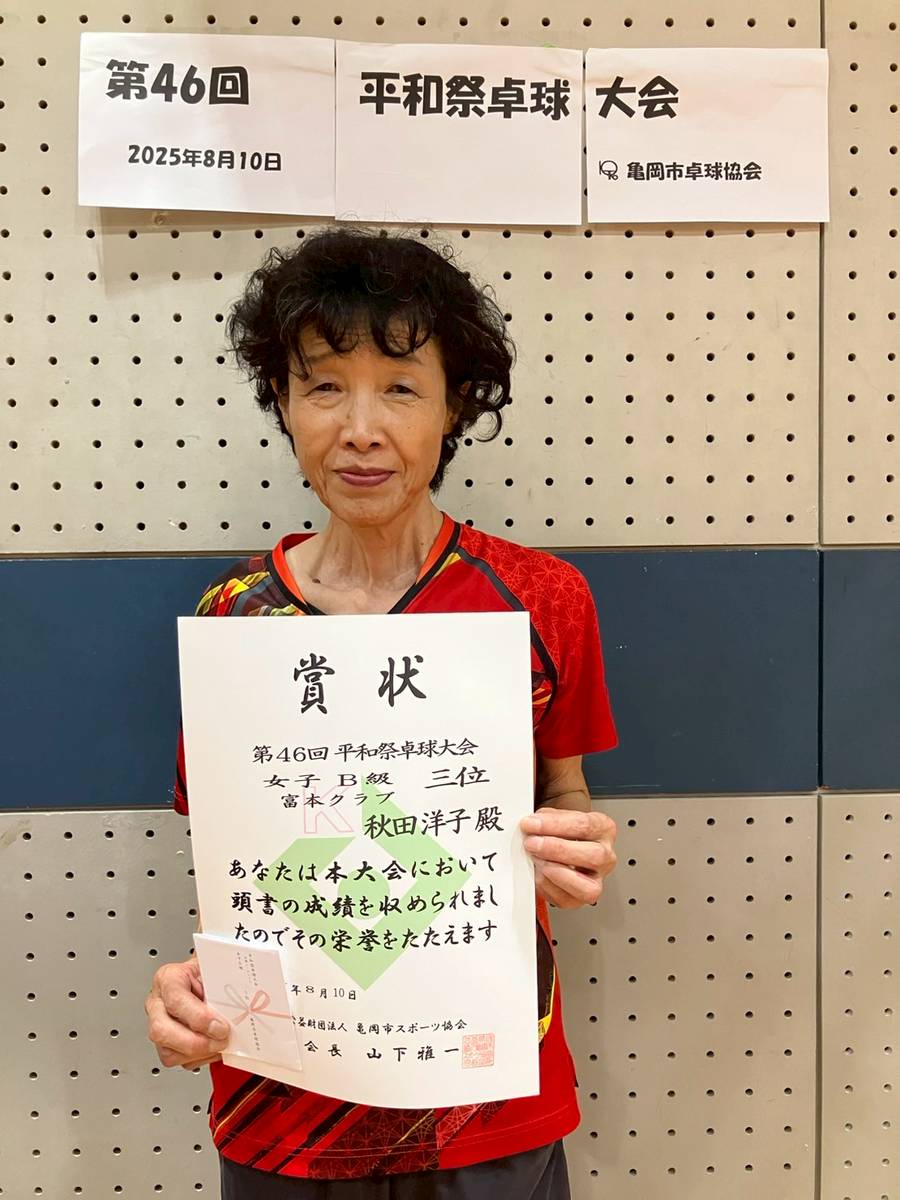 第46回 平和祭卓球 大会
2025年8月10日
亀岡市卓球協会
賞状
第46回 平和祭卓球大会
女子 B級 三位
富本クラブ
K
秋田洋子殿
あなたは本大会において
頭書の成績を収められまし
たのでその栄誉をたたえます
年8月10日
益財団法人 亀岡市スポーツ協会
会長 山下雅一